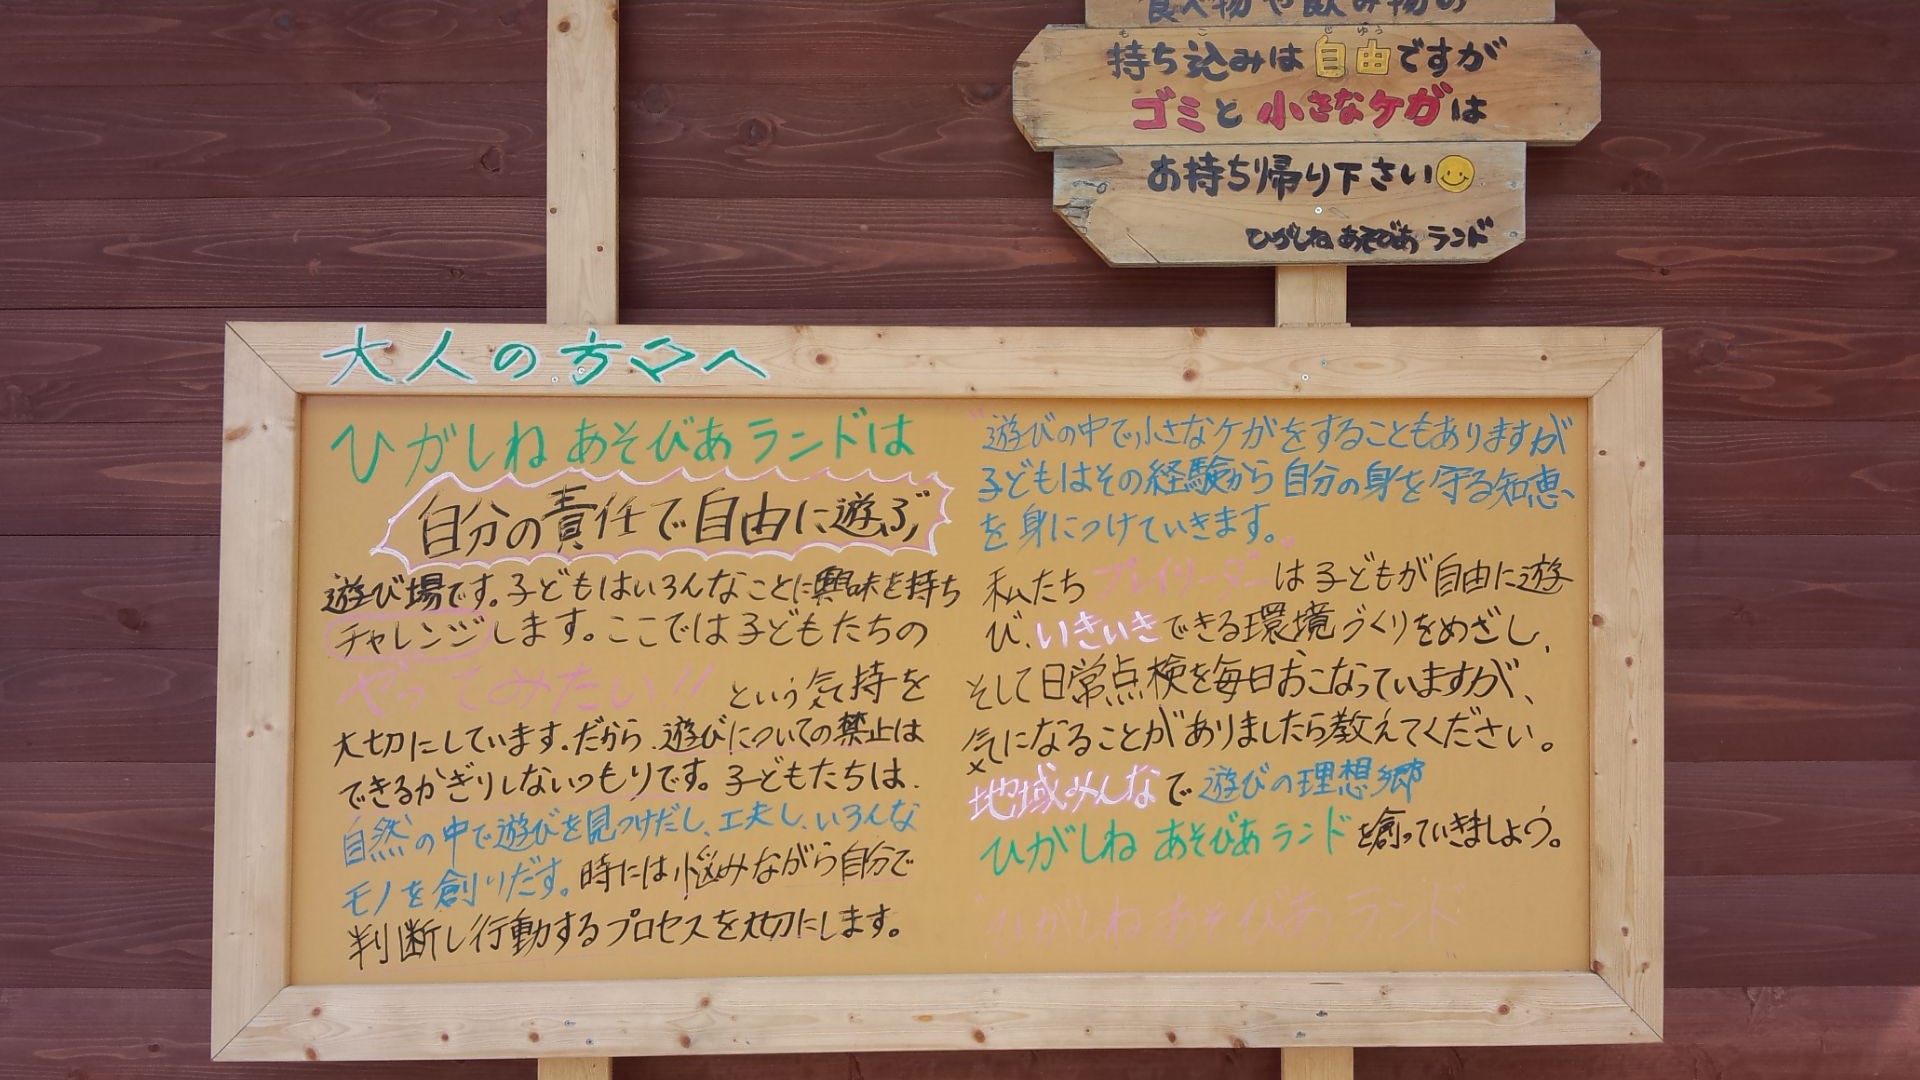 食べ物や飲み物の
持ち込みは自由ですが
ゴミと小さなケガは
お持ち帰り下さい
ひがしね あそびあランド
大人の方々へ
ひがしね あそびあランドは
自分の責任で自由に遊ぶ
遊び場です。子どもはいろんなことに興味を持ち
チャレンジします。ここでは子どもたちの
やってみたい!! という気持を
大切にしています。だから、遊びについての禁止は
できるかぎりしないつもりです。子どもたちは、
自然の中で遊びを見つけだし、工夫し、いろんな
モノを創りだす。時には悩みながら自分で
判断し行動するプロセスを大切にします。
"遊びの中で小さなケガをすることもありますが
子どもはその経験から自分の身を守る知恵
を身につけていきます。"
私たちプレイリーダーは子どもが自由に遊
び、いきいきできる環境づくりをめざし、
そして日常点検を毎日おこなっていますが、
気になることがありましたら教えてください。
地域みんなで遊びの理想郷
ひがしね あそびあランドを創っていきましょう。
"ひがしね あそびあ ランド"